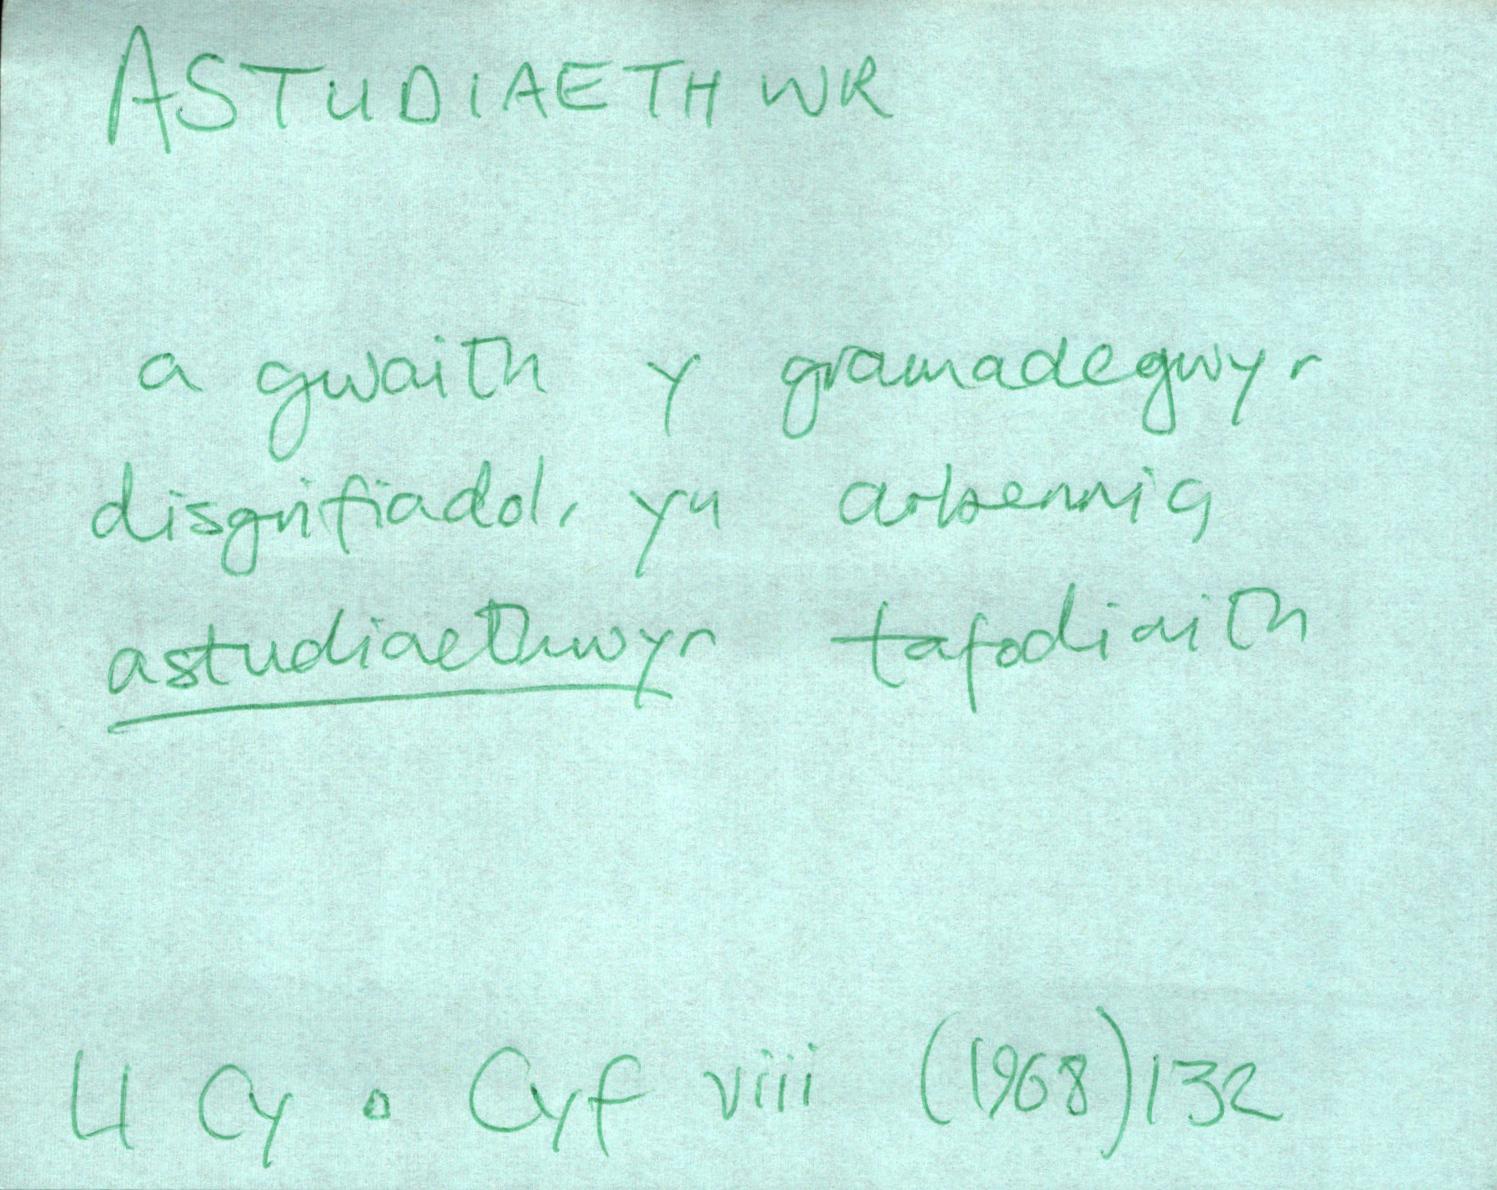 ASTUDIAETHWR
a gwaith y gramadegwyr
disgrifiadol, yn arbennig
astudiaethwyr tafodiaith
Ll Cy . Cyf viii (1968) 132